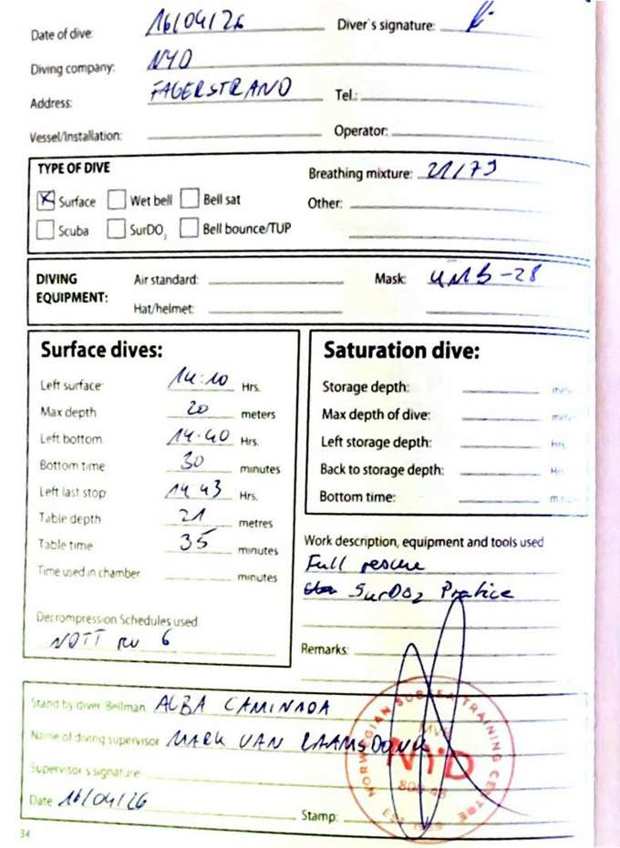 Date of dive: 16/04/26 Diver's signature:
Diving company: NYD
Address: FAGERSTRAND Tel.:
Vessel/Installation: Operator:
TYPE OF DIVE
Breathing mixture: 21/79
Surface Wet bell Bell sat
Other:
Scuba SurDO2 Bell bounce/TUP
DIVING EQUIPMENT:
Air standard: Mask: UMB-28
Hat/helmet:
Surface dives:
Left surface 14:10 Hrs.
Max depth 20 meters
Left bottom 14:40 Hrs.
Bottom time 30 minutes
Left last stop 14 43 Hrs.
Table depth 21 metres
Table time 35 minutes
Time used in chamber minutes
Decrompression Schedules used
NDTT rev 6
Saturation dive:
Storage depth:
Max depth of dive:
Left storage depth: Hrs
Back to storage depth: Hrs
Bottom time:
Work description, equipment and tools used
Full rescue
SurDO2 Pratice
Remarks:
Stand by diver Bellman ALBA CAMINADA
Name of diving supervisor MARK VAN RAAMSDONK
Supervisor's signature
Date 16/04/26
Stamp:
NORWEGIAN SUBSEA TRAINING CENTRE
NYD
34